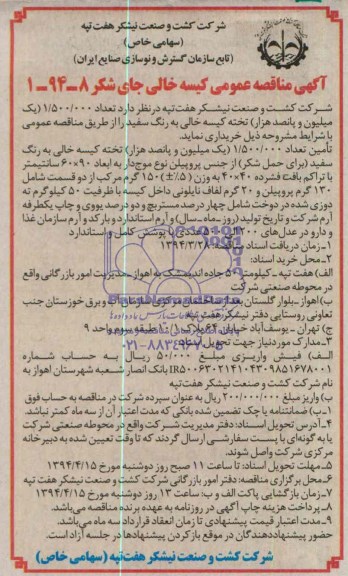 شرکت کشت و صنعت نیشکر هفت تپه
(سهامی خاص)
(تابع سازمان گسترش و نوسازی صنایع ایران)
آگهی مناقصه عمومی کیسه خالی جای شکر ۸-۹۴-۱
شرکت کشت و صنعت نیشکر هفت تپه در نظر دارد تعداد ۱/۵۰۰/۰۰۰ (یک
میلیون و پانصد هزار) تخته کیسه خالی به رنگ سفید را از طریق مناقصه عمومی
با شرایط مشروحه ذیل خریداری نماید.
تأمین تعداد ۱/۵۰۰/۰۰۰ (یک میلیون و پانصد هزار) تخته کیسه خالی به رنگ
سفید (برای حمل شکر) از جنس پروپیلن نوع موج‌دار به ابعاد ۹۰×۶۰ سانتیمتر
با تراکم بافت فشرده ۴۰×۴۰ به وزن (۵٪±) ۱۵۰ گرم مرکب از دو قسمت شامل
۱۳۰ گرم پروپیلن و ۲۰ گرم لفاف نایلونی داخل کیسه با ظرفیت ۵۰ کیلوگرم ته
دوزی شده در دوخت شامل چهار درصد مستربچ و دو درصد یووی و چاپ یکطرفه
آرم شرکت و تاریخ تولید (روز-ماه-سال) و آرم استاندارد و بارکد و آرم سازمان غذا
و دارو در عدل‌های با پوشش کامل و استاندارد
۱-زمان دریافت اسناد ۱۳۹۴/۳/۲۸
۲-محل خرید اسناد:
الف) هفت تپه - کیلومتر ۵۰ جاده اندیمشک به اهواز - مدیریت امور بازرگانی واقع
در محوطه صنعتی شرکت
ب) اهواز - بلوار گلستان سازمان آب و برق خوزستان جنب
تعاونی روستایی دفتر نیشکر هفت تپه
ج) تهران - یوسف آباد خیابان پلاک طبقه سوم واحد ۹
۳-مدارک مورد نیاز جهت تحویل اسناد:
الف) فیش واریزی مبلغ ۵۰/۰۰۰ ریال به حساب شماره
بانک انصار شعبه شهرستان اهواز به
نام شرکت کشت و صنعت نیشکر هفت تپه
ب) واریز مبلغ ۲۰۰/۰۰۰/۰۰۰ ریال به عنوان سپرده شرکت در مناقصه به حساب فوق
۱-ب) ضمانتنامه یا چک تضمین شده بانکی که مدت اعتبار آن از سه ماه کمتر نباشد.
۴-آدرس تحویل اسناد: دفتر مدیریت شرکت واقع در محوطه صنعتی شرکت
یا به گونه‌ای با پست سفارشی ارسال گردند که تا وقت تعیین شده به دبیرخانه
مرکزی شرکت واصل شوند.
۵-مهلت تحویل اسناد: تا ساعت ۱۱ صبح روز دوشنبه مورخ ۱۳۹۴/۴/۱۵
۶-محل برگزاری مناقصه: دفتر امور بازرگانی شرکت کشت و صنعت نیشکر هفت تپه
۷-زمان بازگشایی پاکت الف و ب: ساعت ۱۳ روز دوشنبه مورخ ۱۳۹۴/۴/۱۵
۸-پرداخت هزینه چاپ آگهی در روزنامه به عهده برنده مناقصه می‌باشد.
۹-مدت اعتبار قیمت پیشنهادی تا زمان انعقاد قرارداد سه ماه می‌باشد.
حضور پیشنهاددهندگان در موقع بازکردن پیشنهادها در جلسه آزاد است.
شرکت کشت و صنعت نیشکر هفت تپه (سهامی خاص)